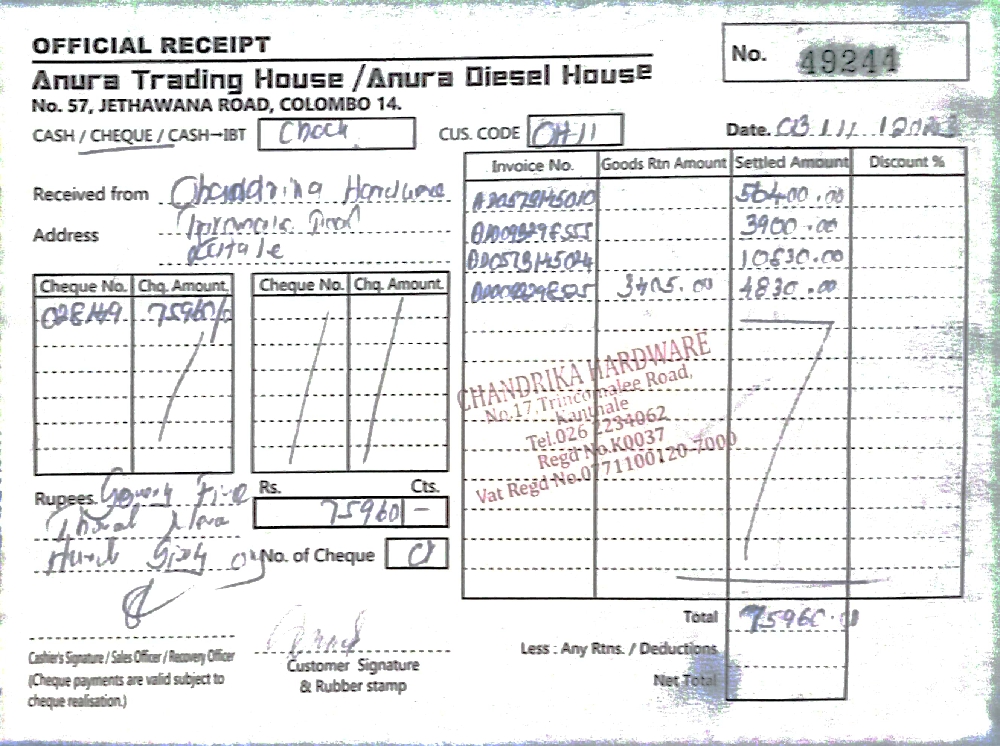 OFFICIAL RECEIPT
No. 49244
Anura Trading House /Anura Diesel House
No. 57, JETHAWANA ROAD, COLOMBO 14.
CASH / CHEQUE / CASH→IBT
CUS. CODE CH11
Date.
Invoice No. Goods Rtn Amount Settled Amount Discount %
Received from
Address
56400.00
3900.00
10830.00
3405.00 4830.00
Cheque No. Chq. Amount. Cheque No. Chq. Amount.
75960/
CHANDRIKA HARDWARE
No.17, Trincomalee Road,
Kanthale
Tel.026 2234062
Regd No.K0037
Vat Regd No.0771100120-7000
Rupees. Rs. Cts.
75960 -
No. of Cheque 01
Total 75960.00
Less : Any Rtns. / Deductions
Net Total
Cashier's Signature / Sales Officer / Recovery Officer
(Cheque payments are valid subject to
cheque realisation.)
Customer Signature
& Rubber stamp